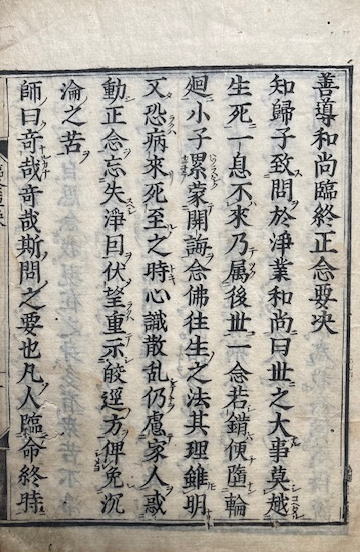 善導和尚臨終正念要决
知歸子致問於淨業和尚曰世之大事莫越
生死一息不來乃属後世一念若錯便墮輪
廻小子累蒙開誨念佛往生之法其理雖明
又恐病來死至之時心識散乱仍慮家人惑
動正念忘失淨因伏望重示皈逕方俾免沉
淪之苦
師曰奇哉奇哉斯問之要也凡人臨命終時